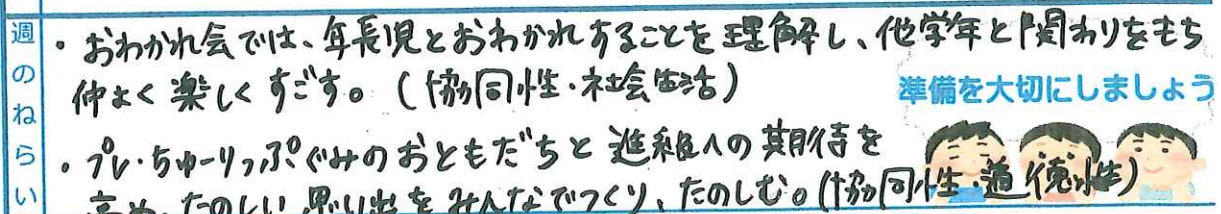 週のねらい
・おわかれ会では、年長児とおわかれすることを理解し、他学年と関わりをもち
仲よく楽しくすごす。(協同性・社会生活)
準備を大切にしましょう
・プレ・ちゅーりっぷぐみのおともだちと進級への期待を
高め、たのしい思い出をみんなでつくり、たのしむ。(協同性・道徳性)